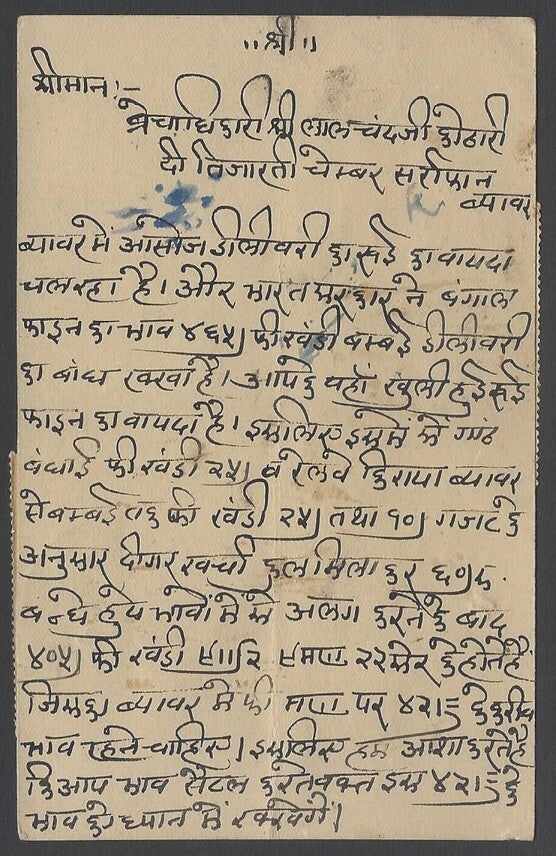 ॥ श्री ॥
श्रीमान :-
श्रेचाधिकारी श्री लालचंदजी कोठारी
दी तिजारती चेम्बर सर्राफान
ब्यावर
ब्यावर मे आसोज डीलीवरी का रूई का वायदा
चल रहा है। और भारत सरकार ने बंगाल
फाइन का भाव ४६५) फी खंडी बम्बई डीलीवरी
का बांध रक्खा है। आपके यहाँ खुली हुई रूई
फाइन का वायदा है। इसलिए इसमें से गांठ
बंधाई फी खंडी २५) व रेलवे किराया ब्यावर
से बम्बई तक फी खंडी २५) तथा १०) गजट के
अनुसार दीगर खर्चा कुल मिला कर ६०) रु.
बन्धे हुये भावों में से अलग करने के बाद
४०५) फी खंडी मण २२ सेर के होते है
जिसका ब्यावर मे फी मण पर ४२।= के करीब
भाव रहने चाहिए। इसलिए हम आशा करते है
कि आप भाव सैटल करते वक्त इस ४२।= के
भाव को ध्यान में रक्खेगें।